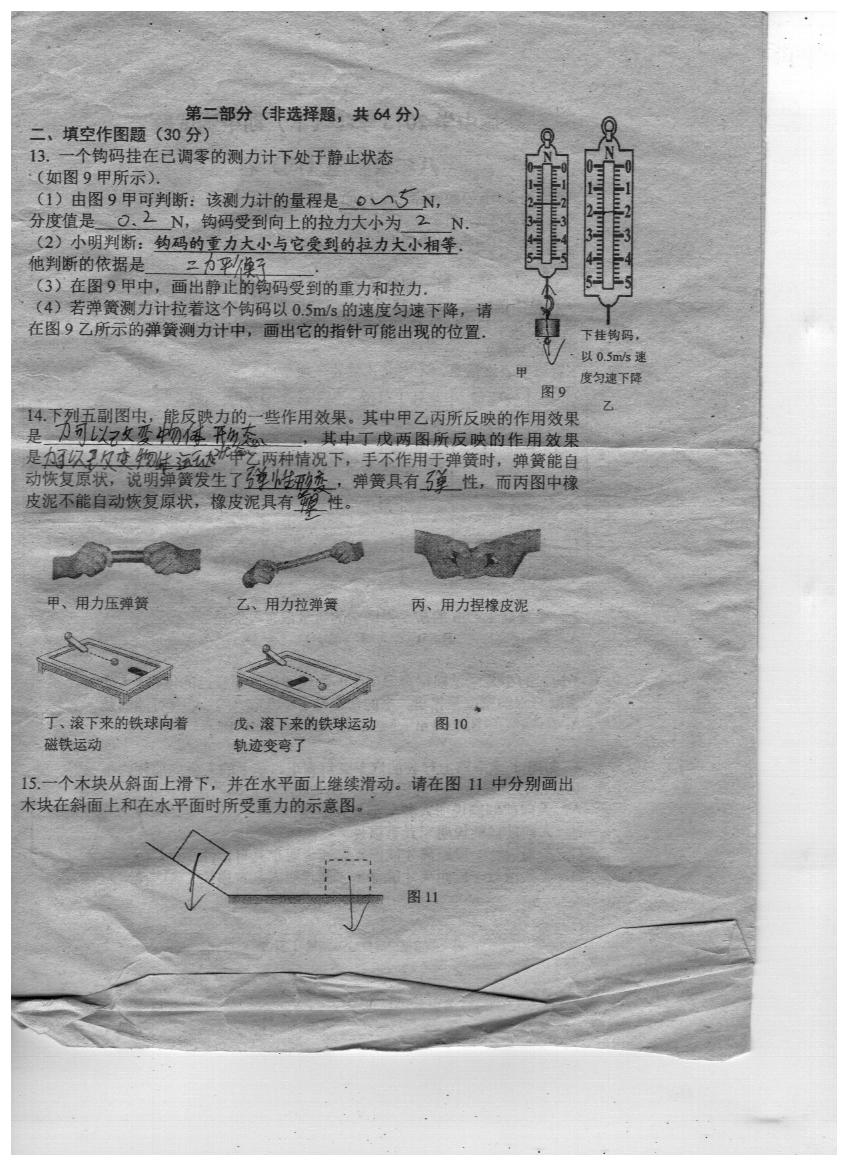 第二部分（非选择题，共 64 分）
二、填空作图题（30 分）
13. 一个钩码挂在已调零的测力计下处于静止状态
（如图 9 甲所示）.
（1）由图 9 甲可判断：该测力计的量程是 0~5 N，
分度值是 0.2 N，钩码受到向上的拉力大小为 2 N.
（2）小明判断：钩码的重力大小与它受到的拉力大小相等.
他判断的依据是 二力平衡 .
（3）在图 9 甲中，画出静止的钩码受到的重力和拉力.
（4）若弹簧测力计拉着这个钩码以 0.5m/s 的速度匀速下降，请
在图 9 乙所示的弹簧测力计中，画出它的指针可能出现的位置.
N
0 0
1 1
2 2
3 3
4 4
5 5
甲
N
0 0
1 1
2 2
3 3
4 4
5 5
下挂钩码，
以 0.5m/s 速
度匀速下降
乙
图 9
14.下列五副图中，能反映力的一些作用效果。其中甲乙丙所反映的作用效果
是 力可以改变物体形态 ，其中丁戊两图所反映的作用效果
是 力可以改变物体运动状态 甲乙两种情况下，手不作用于弹簧时，弹簧能自
动恢复原状，说明弹簧发生了 弹性形变 ，弹簧具有 弹 性，而丙图中橡
皮泥不能自动恢复原状，橡皮泥具有 塑 性。
甲、用力压弹簧
乙、用力拉弹簧
丙、用力捏橡皮泥
丁、滚下来的铁球向着
磁铁运动
戊、滚下来的铁球运动
轨迹变弯了
图 10
15.一个木块从斜面上滑下，并在水平面上继续滑动。请在图 11 中分别画出
木块在斜面上和在水平面时所受重力的示意图。
图 11